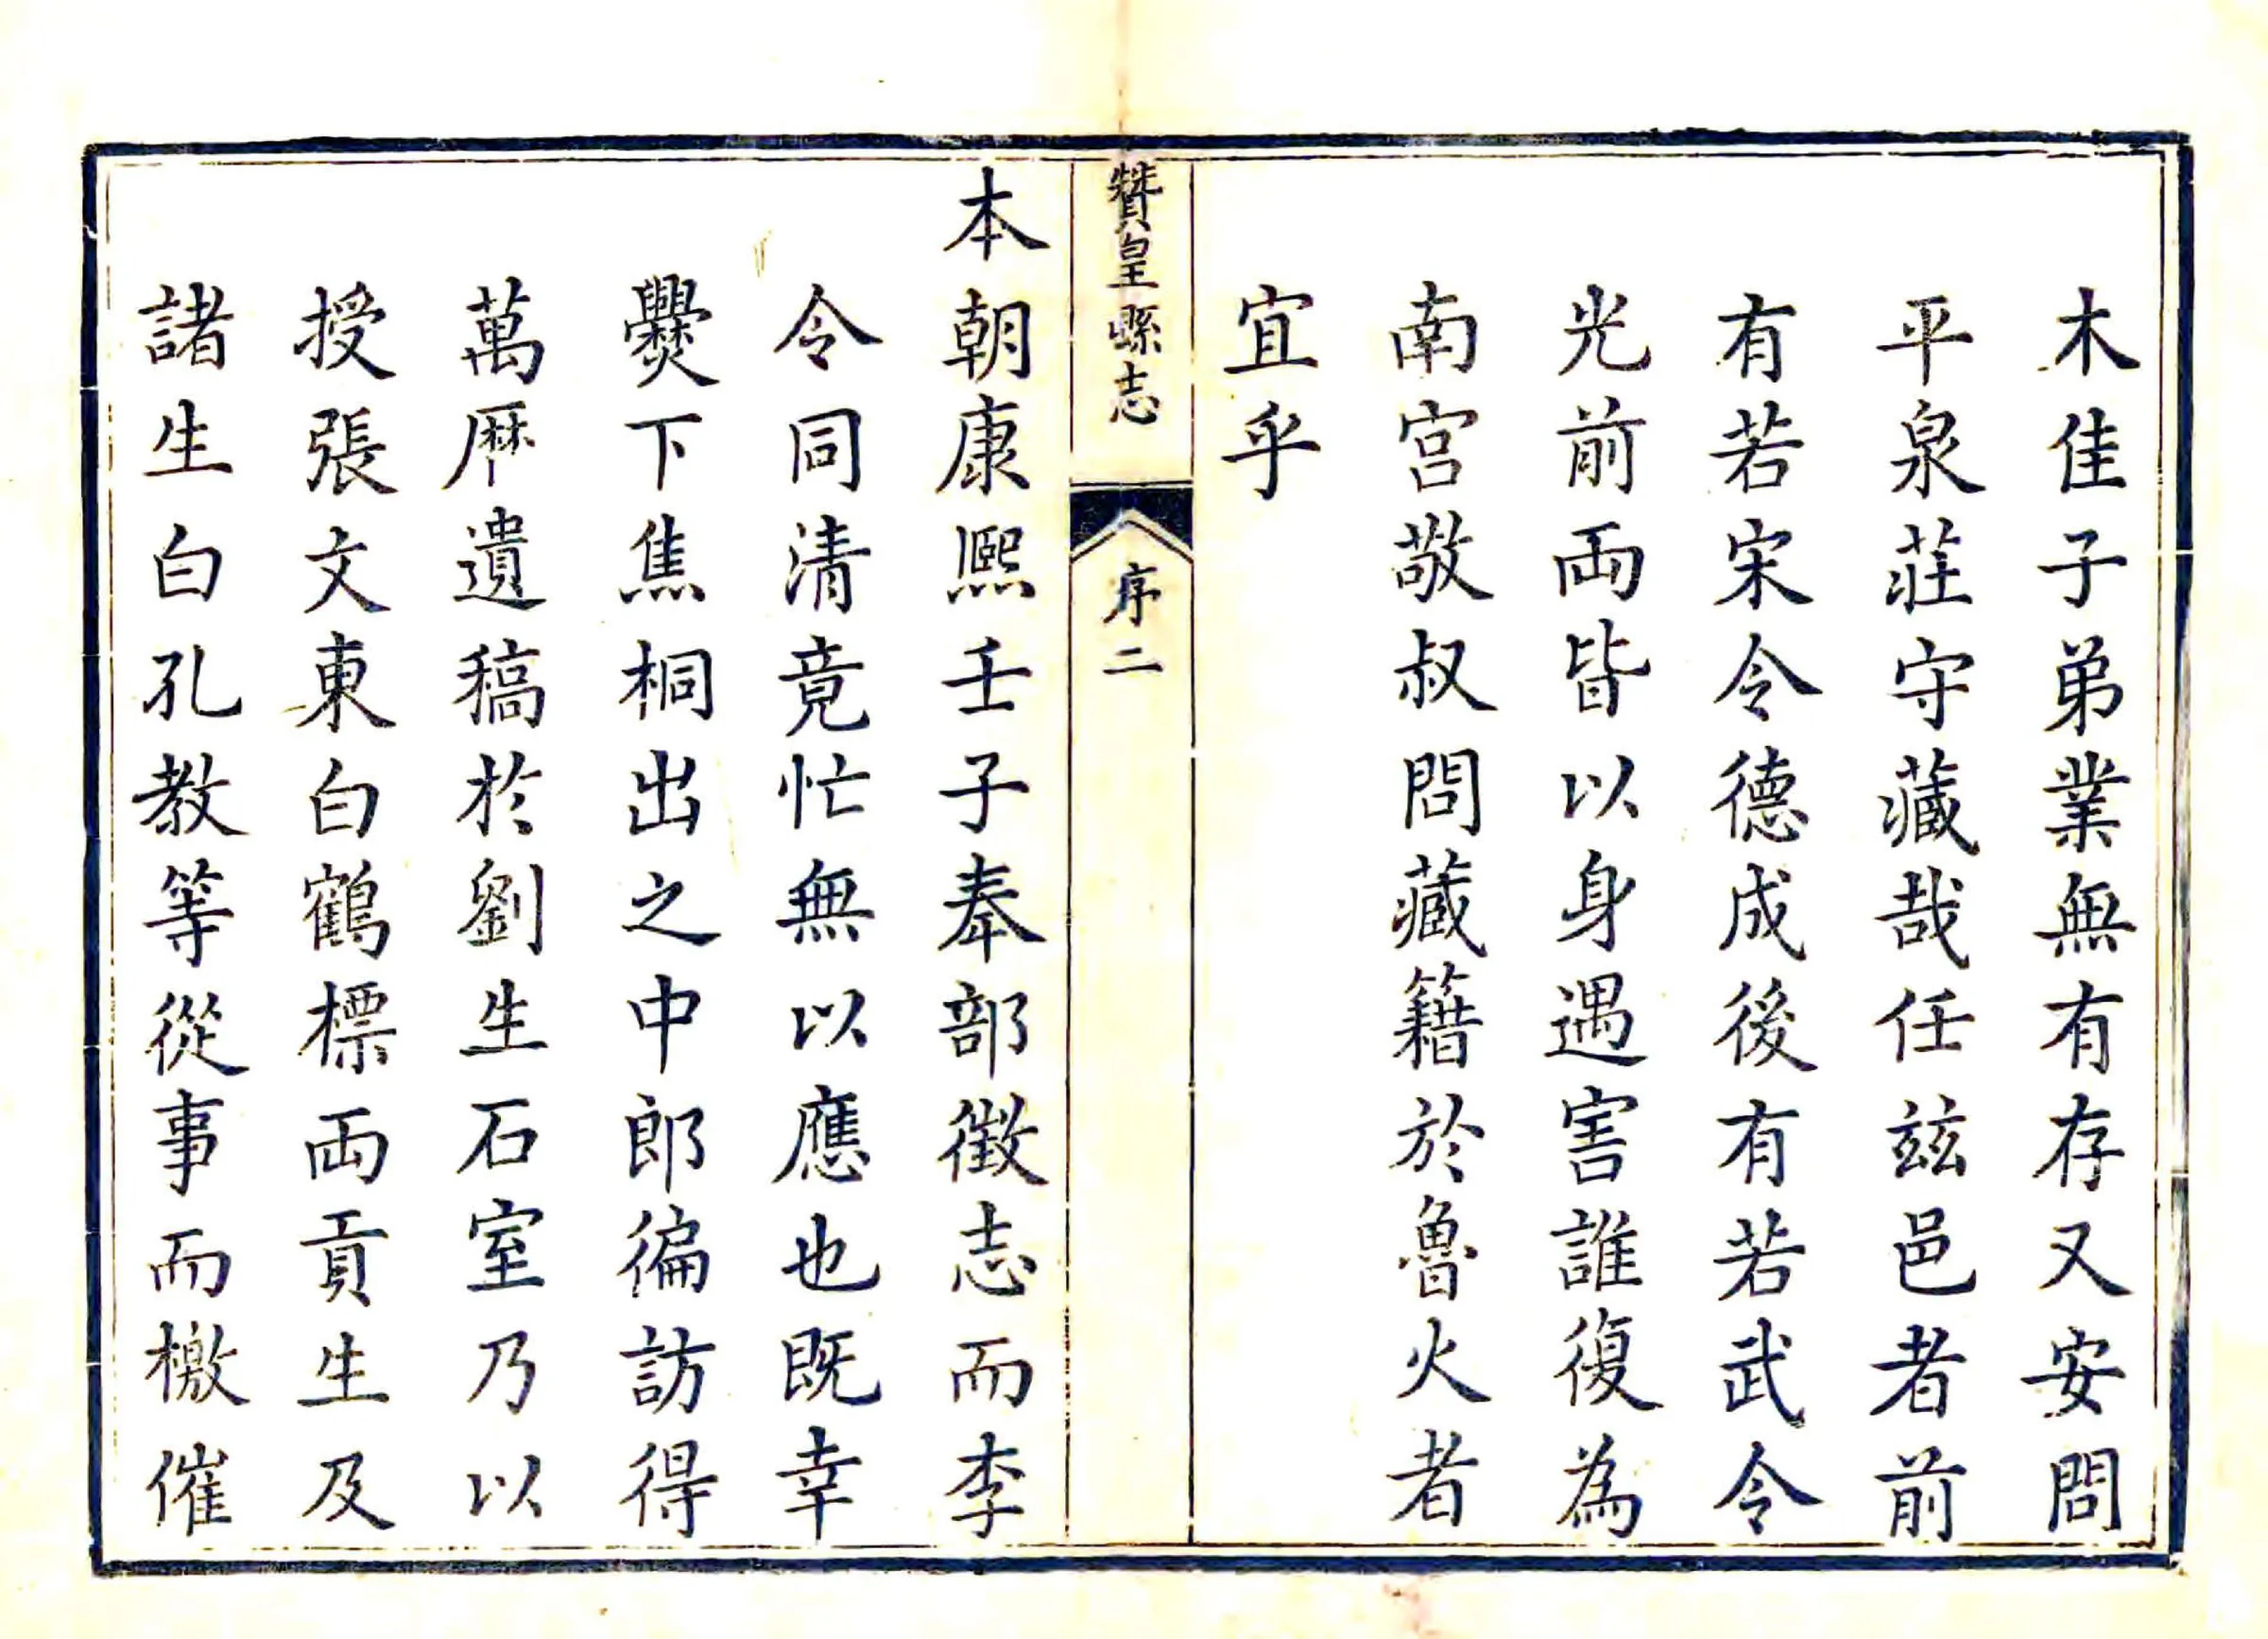 木佳子弟業無有存又安問
平泉莊守藏哉任兹邑者前
有若宋令德成後有若武令
光前両皆以身遇害誰復為
南宫敬叔問藏籍於魯火者
宜乎
贊皇縣志
序二
本朝康熙壬子奉部徵志而李
令同清竟忙無以應也既幸
爨下焦桐出之中郎徧訪得
萬厯遺稿於劉生石室乃以
授張文東白鶴標両貢生及
諸生白孔教等從事而檄催